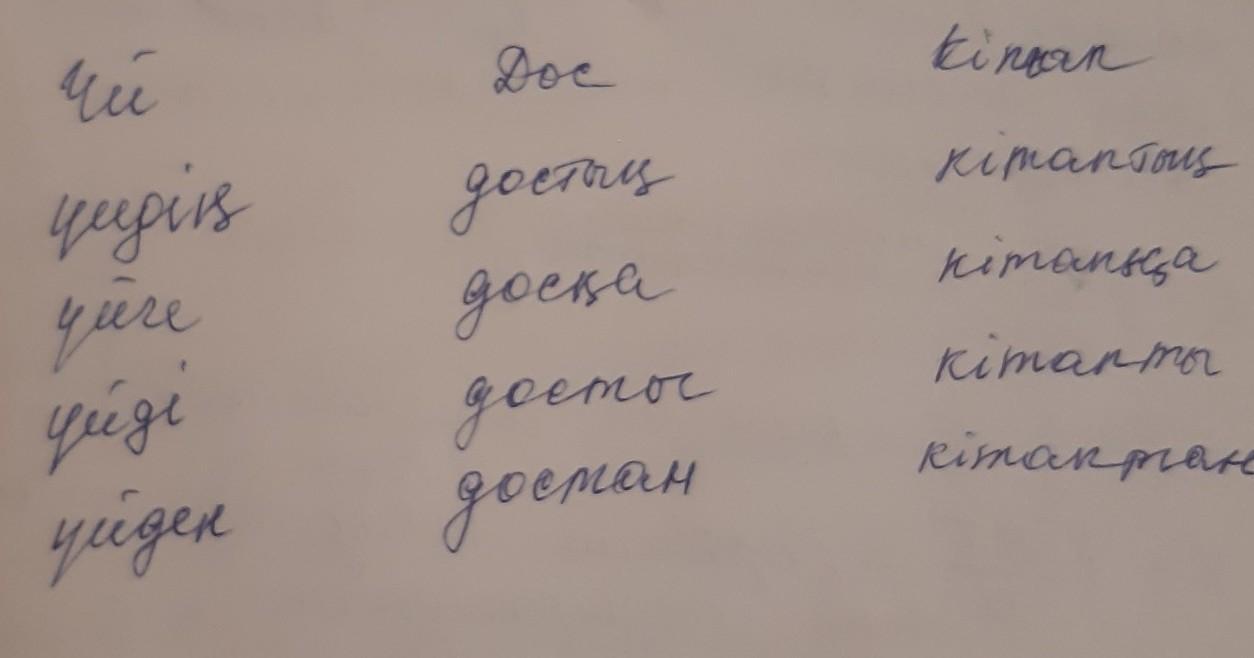 Үй Дос Кітап
үйдің достың кітаптың
үйге досқа кітапқа
үйді досты кітапты
үйден достан кітаптан